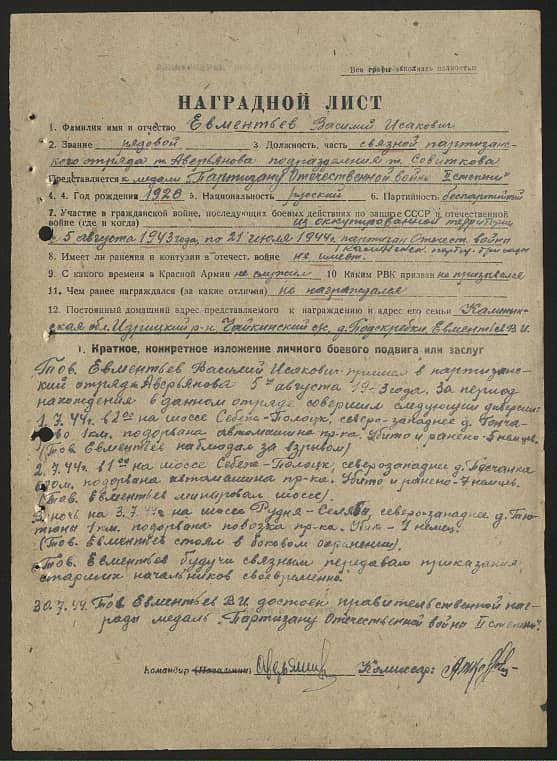 Все графы заполнять полностью
НАГРАДНОЙ ЛИСТ
1. Фамилия имя и отчество Евментьев Василий Исакович
2. Звание рядовой 3. Должность, часть связной партизан-
ского отряда т. Аверьянова подразделения т.
Представляется к медали „Партизану Отечественной войны II степени"
4. 4. Год рождения 1928 5. Национальность русский 6. Партийность беспартийный
7. Участие в гражданской войне, последующих боевых действиях по защите СССР и отечественной
войне (где и когда) на оккупированной территории
с 5 августа 1943 года, по 21 июля 1944г. партизан Отечест. войны
Калининск. парт. бригады
8. Имеет ли ранения и контузии в отечест. войне не имеет.
9. С какого времени в Красной Армии не служил 10 Каким РВК призван не призывался
11. Чем ранее награждался (за какие отличия) не награждался
12. Постоянный домашний адрес представляемого к награждению и адрес его семьи Калинин-
ская обл. Идрицкий р-н. Чайкинский с/с. д. Подскребки, Евментьев В.И.
I. Краткое, конкретное изложение личного боевого подвига или заслуг
Тов. Евментьев Василий Исакович пришел в партизан-
ский отряд Аверьянова 5го августа 1943 года. За период
нахождения в данном отряде совершил следующие диверсии:
1.7.44г. в 2 00 на шоссе Себеж-Полоцк, северо-западнее д.
1 км. подорвана автомашина пр-ка. Убито и ранено-5 немцев.
(Тов. Евментьев наблюдал за взрывом)
2.7.44г. на шоссе Себеж-Полоцк, северозападнее д.
подорвана автомашина пр-ка. Убито и ранено-7 немцев.
(Тов. Евментьев минировал шоссе).
В ночь на 3.7.44г. на шоссе Рудня-Селявы, северо-западнее д. Тю-
тюны 1 км. подорвана повозка пр-ка. 1 немец.
(Тов. Евментьев стоял в боковом охранении).
Тов. Евментьев будучи связным передавал приказания
старших начальников своевременно.
30.7.44. Тов. Евментьев В.И. достоен правительственной наг-
рады медаль „Партизану Отечественной войны II степени".
Командир (Начальник) Комиссар: